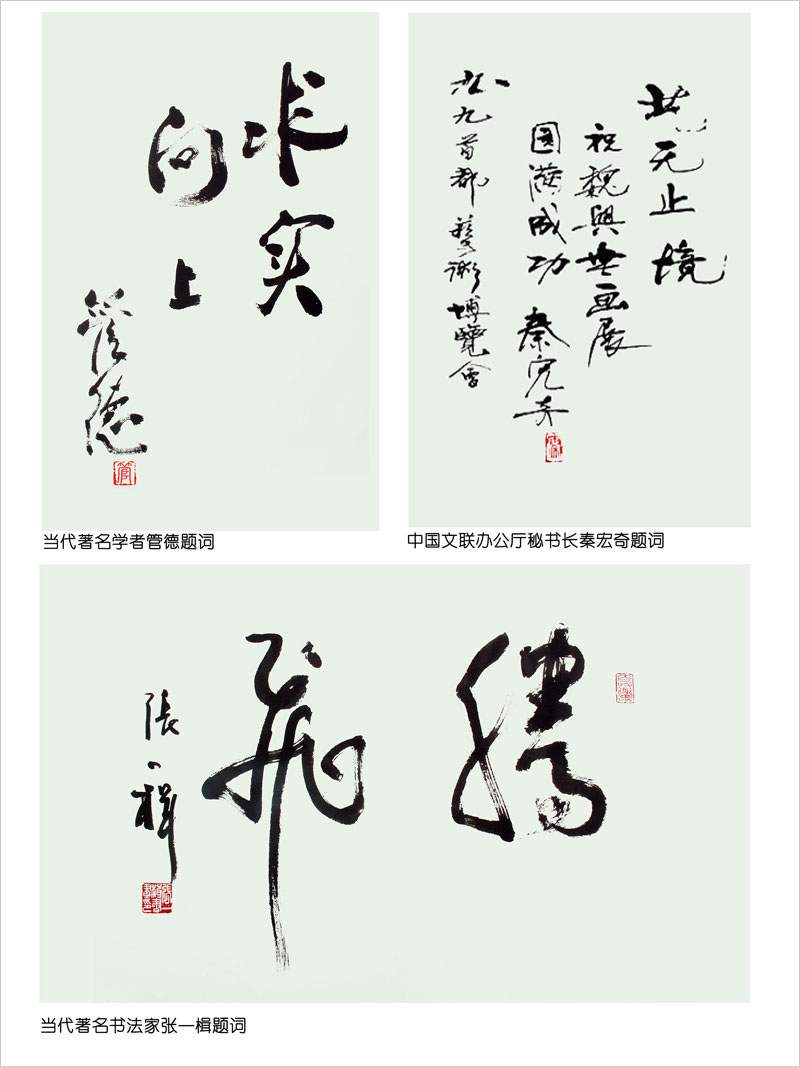 求实
向上
管德
无止境
祝魏與画展
圆满成功 秦宏奇
九首都藝術博覽會
当代著名学者管德题词
中国文联办公厅秘书长秦宏奇题词
腾飛
張一楫
当代著名书法家张一楫题词